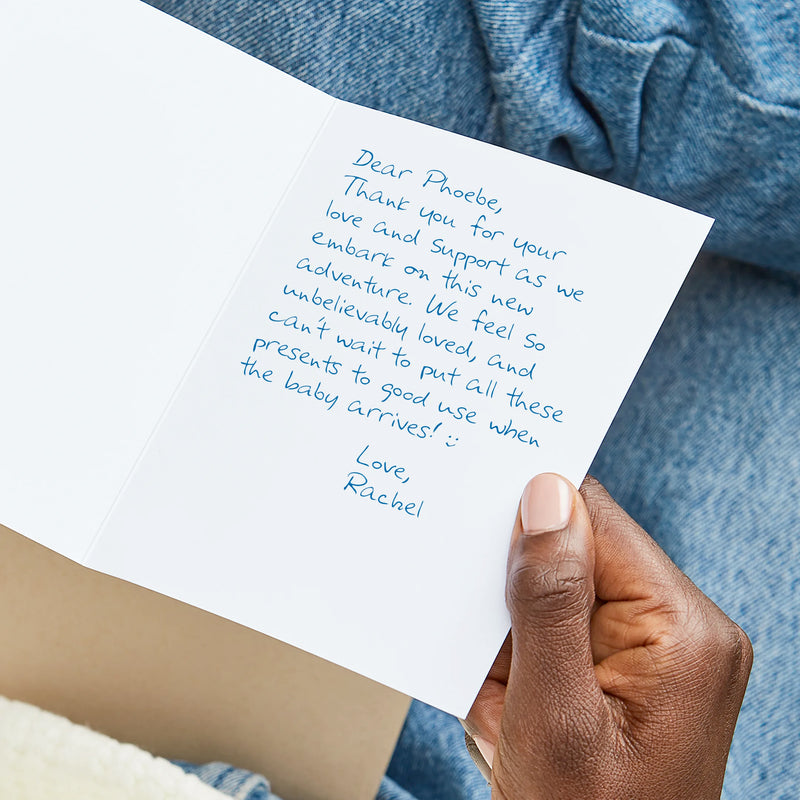 Dear Phoebe,
Thank you for your
love and support as we
embark on this new
adventure. We feel so
unbelievably loved, and
can't wait to put all these
presents to good use when
the baby arrives! :)
Love,
Rachel